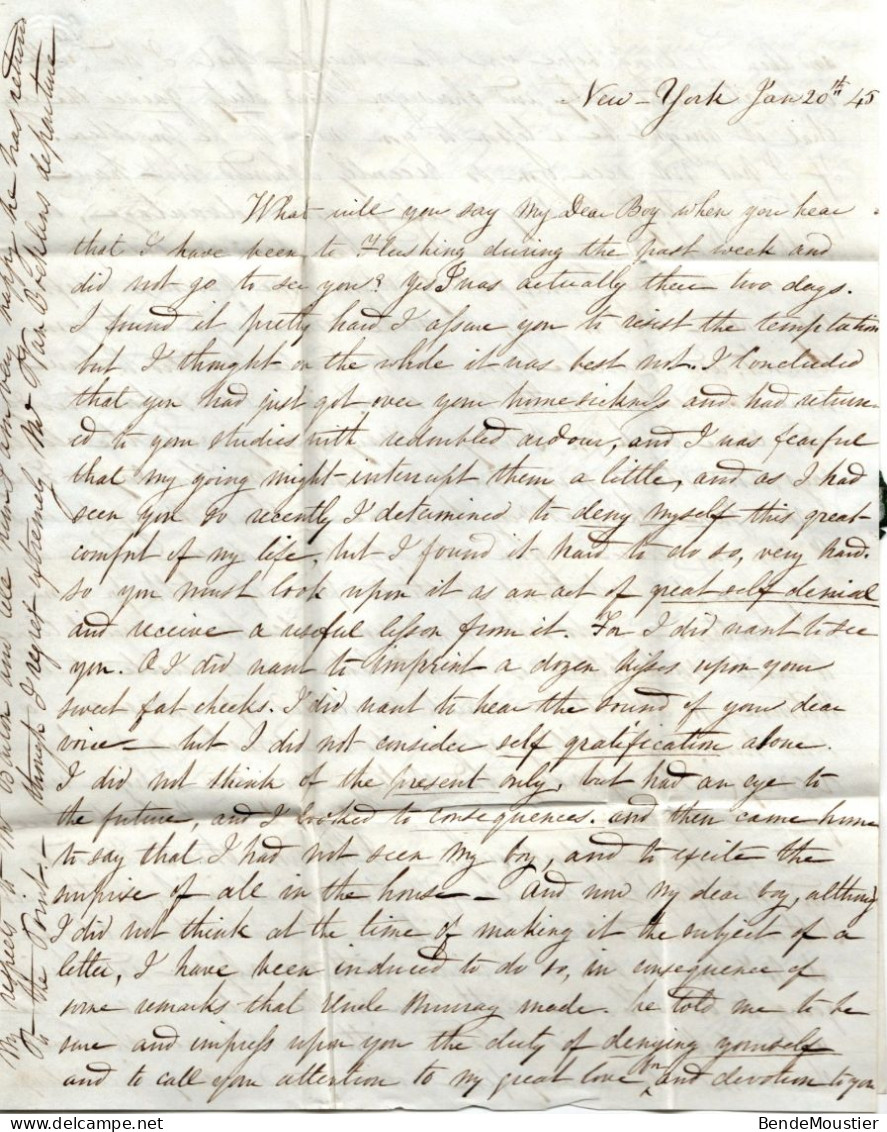 New-York Jan 20th 45
What will you say My Dear Boy when you hear
that I have been to Flushing during the past week and
did not go to see you? Yes I was actually there two days.
I found it pretty hard I assure you to resist the temptation
but I thought on the whole it was best not. I Concluded
that you had just got over your homesickness and had return-
ed to your studies with redoubled ardour, and I was fearful
that my going might interrupt them a little, and as I had
seen you so recently I determined to deny myself this great
comfort of my life, but I found it hard to do so, very hard.
so you must look upon it as an act of great self denial
and receive a useful lesson from it. For I did want to see
you. O I did want to imprint a dozen kisses upon your
sweet fat cheeks. I did want to hear the sound of your dear
voice - but I did not consider self gratification alone.
I did not think of the present only, but had an eye to
the future, and I looked to consequences. and then came home
to say that I had not seen my boy, and to excite the
surprise of all in the house - And now my dear boy, although
I did not think at the time of making it the subject of a
letter, I have been induced to do so, in consequence of
some remarks that Uncle Murray made. he told me to be
sure and impress upon you the duty of denying yourself
and to call your attention to my great love for and devotion to you
My respects to Mr and tell him I am very happy he has return
to the Point. - though I regret extremely Mr Van departure
BendeMoustier